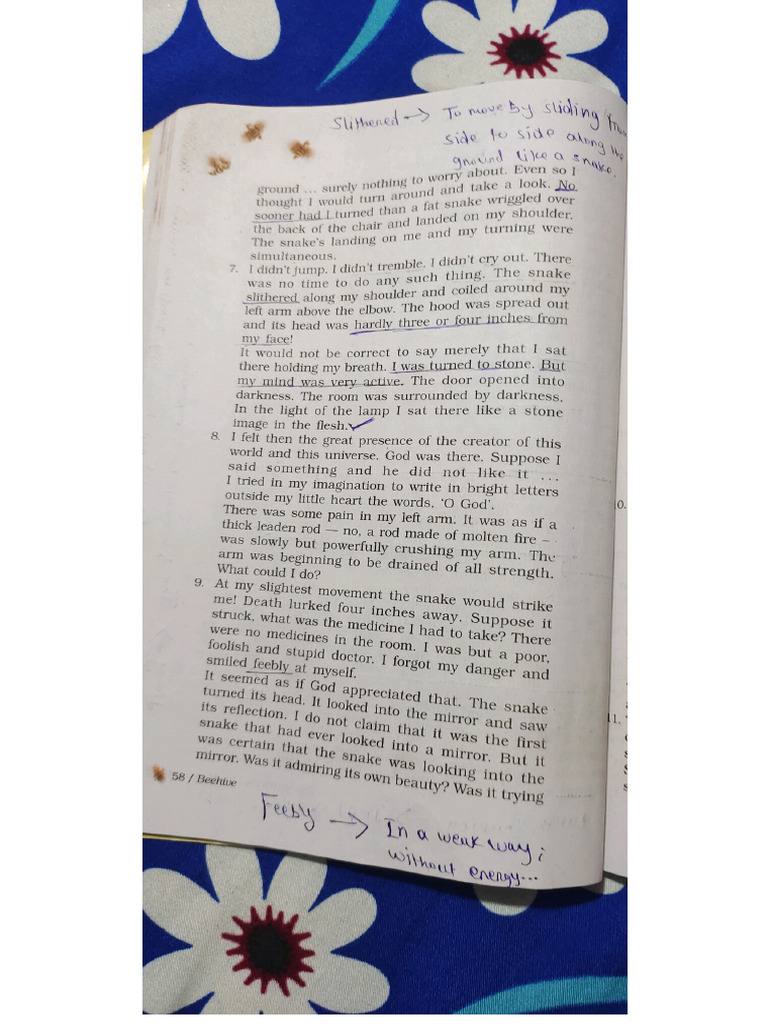 Slithered → To move by sliding from
side to side along the
ground like a snake.
ground ... surely nothing to worry about. Even so I
thought I would turn around and take a look. No
sooner had I turned than a fat snake wriggled over
the back of the chair and landed on my shoulder.
The snake's landing on me and my turning were
simultaneous.
7. I didn't jump. I didn't tremble. I didn't cry out. There
was no time to do any such thing. The snake
slithered along my shoulder and coiled around my
left arm above the elbow. The hood was spread out
and its head was hardly three or four inches from
my face!
It would not be correct to say merely that I sat
there holding my breath. I was turned to stone. But
my mind was very active. The door opened into
darkness. The room was surrounded by darkness.
In the light of the lamp I sat there like a stone
image in the flesh.
8. I felt then the great presence of the creator of this
world and this universe. God was there. Suppose I
said something and he did not like it ...
I tried in my imagination to write in bright letters
outside my little heart the words, 'O God'.
There was some pain in my left arm. It was as if a
thick leaden rod — no, a rod made of molten fire –
was slowly but powerfully crushing my arm. The
arm was beginning to be drained of all strength.
What could I do?
9. At my slightest movement the snake would strike
me! Death lurked four inches away. Suppose it
struck, what was the medicine I had to take? There
were no medicines in the room. I was but a poor,
foolish and stupid doctor. I forgot my danger and
smiled feebly at myself.
It seemed as if God appreciated that. The snake
turned its head. It looked into the mirror and saw
its reflection. I do not claim that it was the first
snake that had ever looked into a mirror. But it
was certain that the snake was looking into the
mirror. Was it admiring its own beauty? Was it trying
58 / Beehive
Feebly → In a weak way;
without energy...
0.
11.